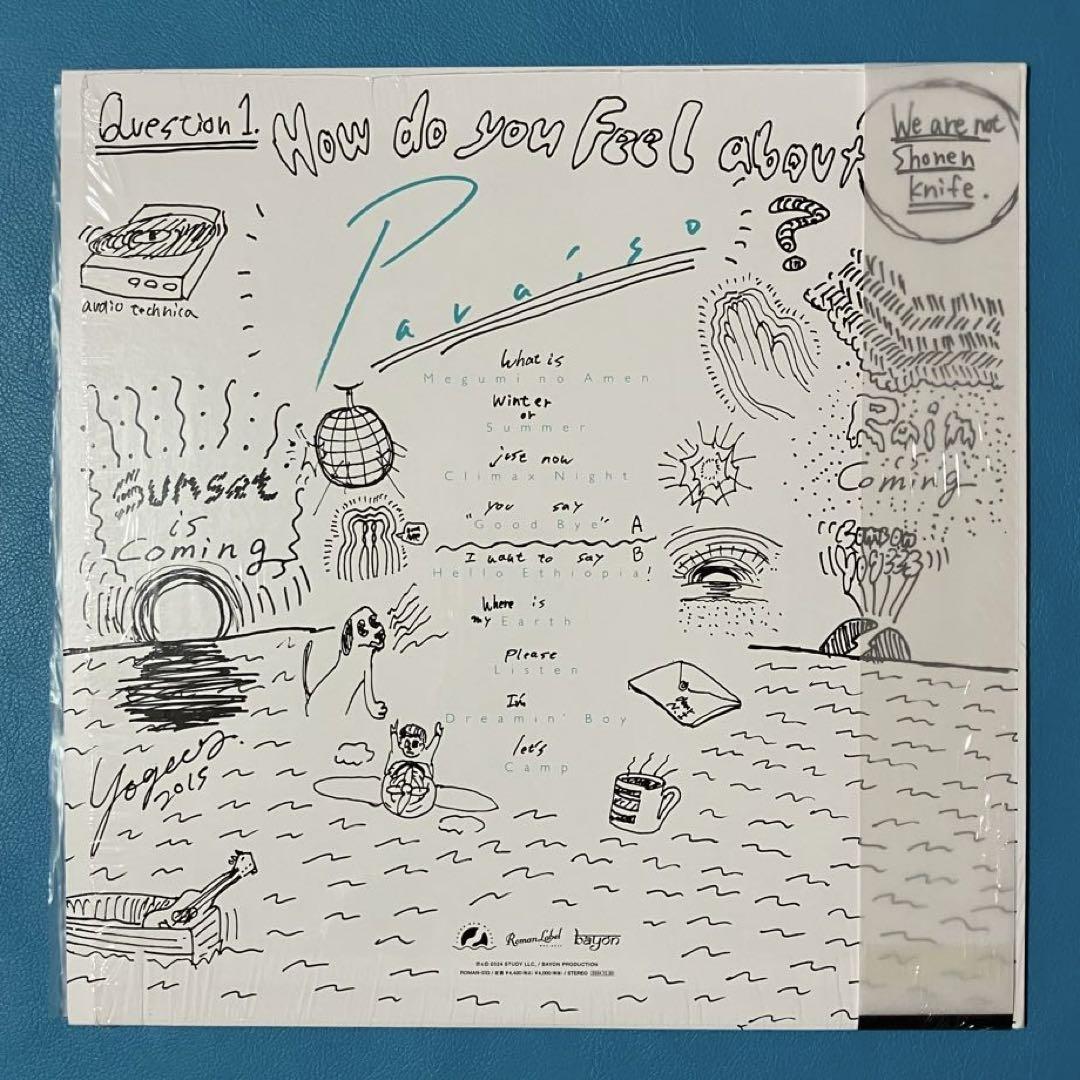 Question 1.
How do you Feel about
We are not
Shonen
knife.
Paraiso
?
audio technica
What is
Megumi no Amen
Winter
or
Summer
just now
Climax Night
"you say
Good Bye"
A
I want to say
B
Hello Ethiopia!
Where is
my Earth
Please
Listen
I'm
Dreamin' Boy
let's
Camp
sunset
is
Coming
Rain
is
Coming
Yogees
2015
Roman Label
bayon
℗&© 2024 STUDY LLC. / BAYON PRODUCTION